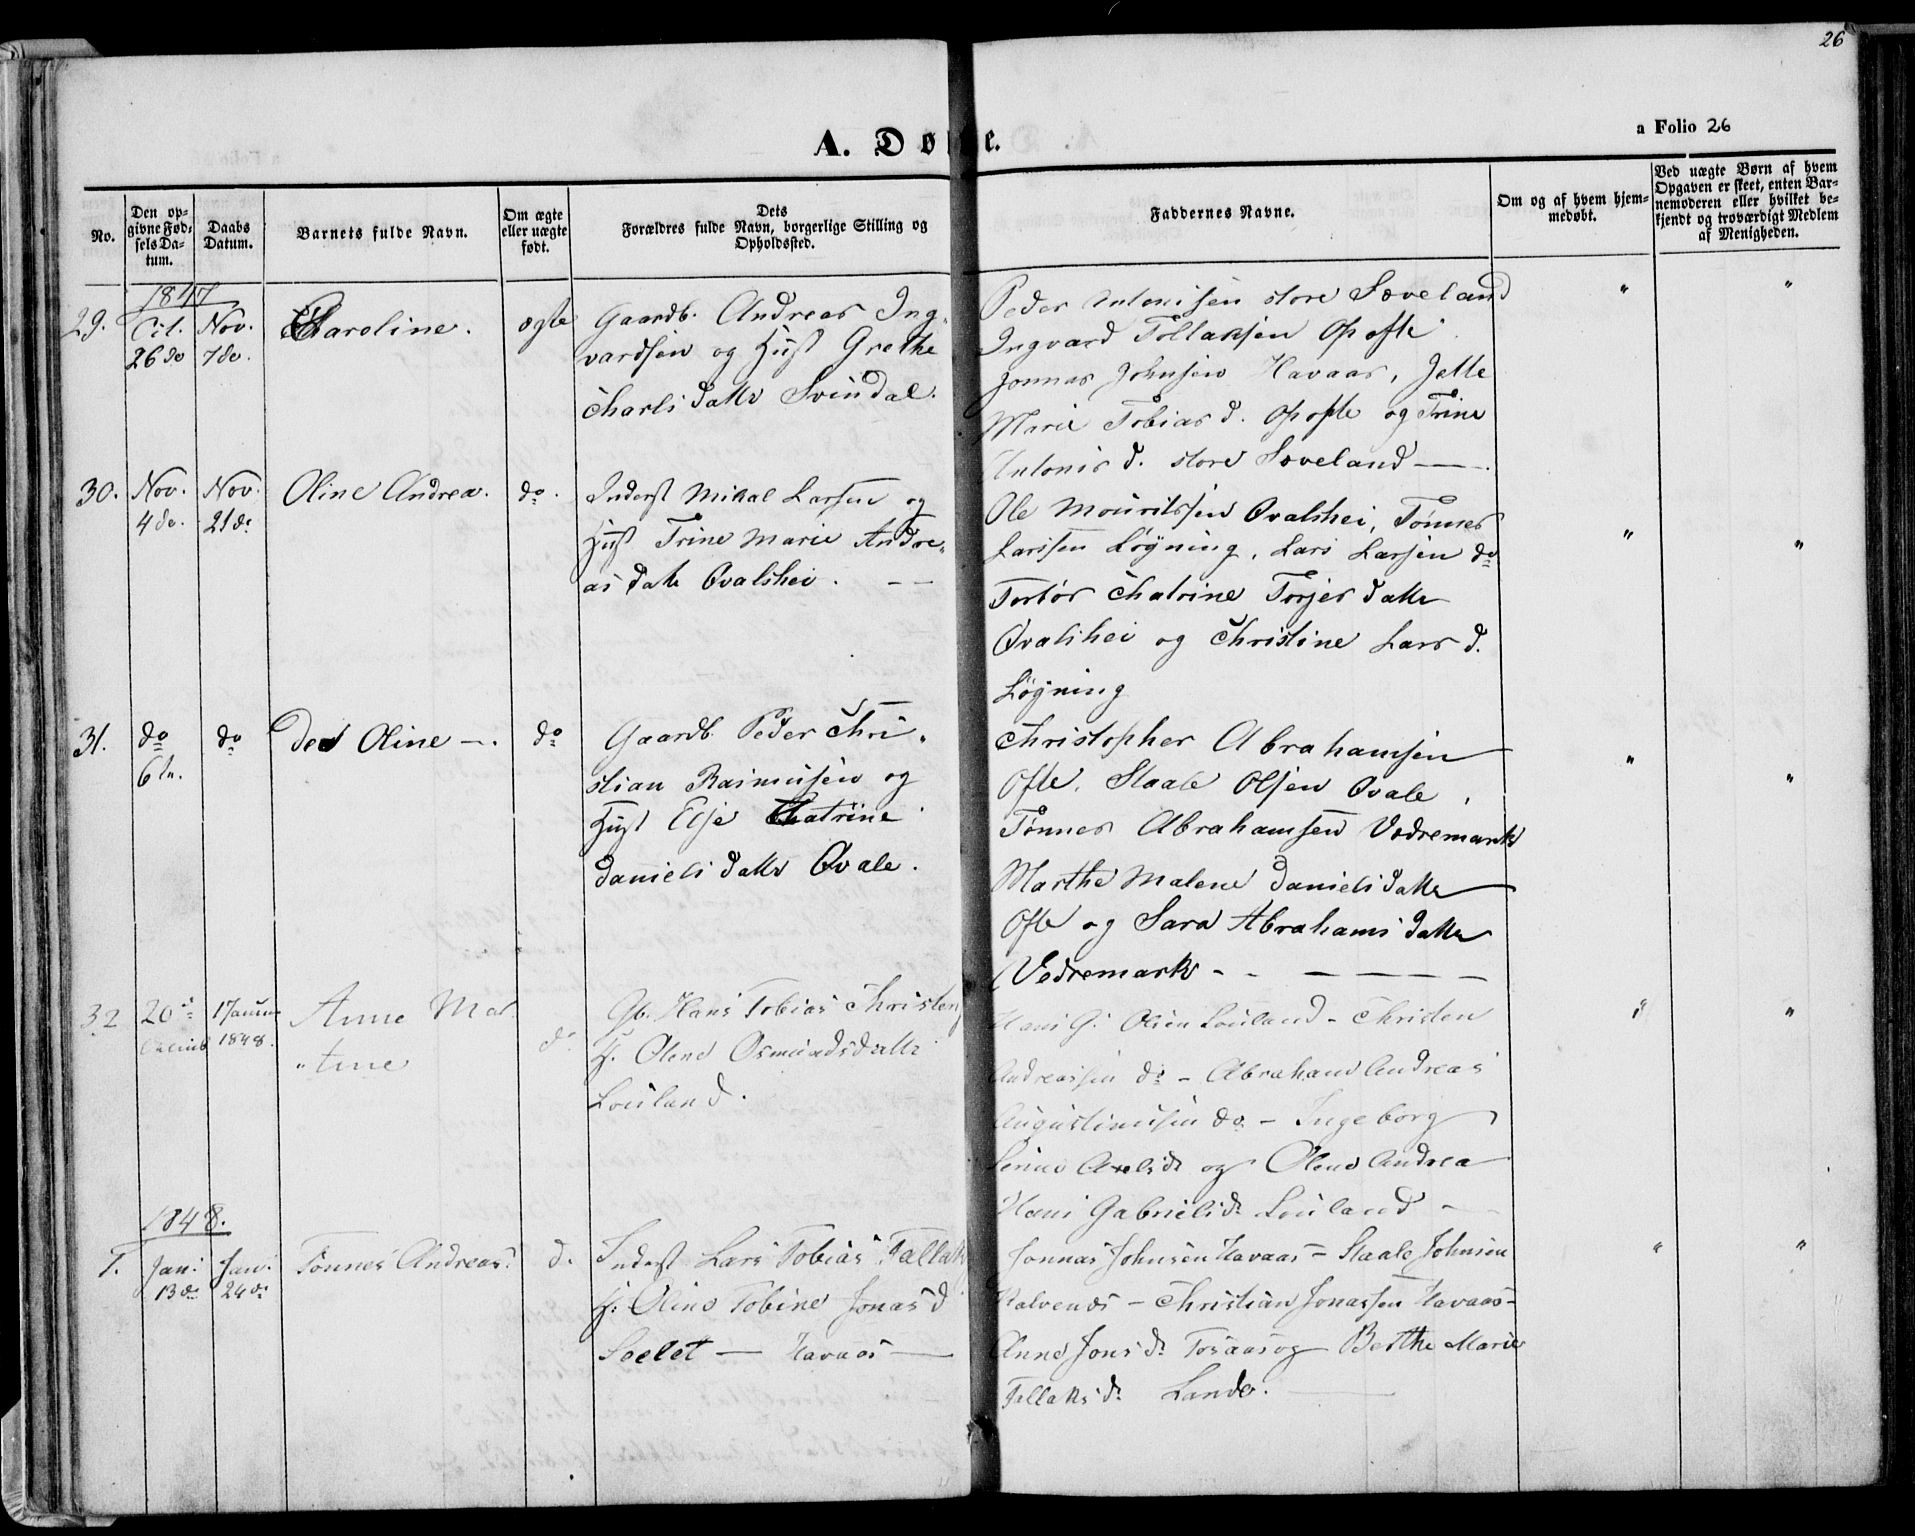 26
A. Døbte.
a Folio 26
No.
Den op-
givne Fød-
sels Da-
tum.
Daabs
Datum.
Barnets fulde Navn.
Om ægte
eller uægte
født.
Dets
Forældres fulde Navn, borgerlige Stilling og
Opholdssted.
Faddernes Navne.
Om og af hvem hjem-
medøbt.
Ved uægte Børn af hvem
Opgaven er skeet, enten Bar-
nemoderen eller hvilket be-
kjendt og troværdigt Medlem
af Menigheden.
1847
29.
26 do
Nov.
7 de.
Caroline.
ægte
Gaardb. Andreas Ing-
vardsen og Hust Grethe
Charls datter Svindal.
Peder Antonisen store Sæveland
Ingvard Tollaksen Opofte
Jonnas Johnsen Havaas, Jette
Marie Tobias d. Opofte og Trine
Antonis d. store Sæveland
" "
30.
Nov.
4 de.
Nov.
21 de
Oline Andrea.
do.
Inderst Mikal Larsen og
Hust Trine Marie Andre-
as datt Qvalshei.
Ole Mouritssen Qvalshei, Tønnes
Larssen Løgning, Lars Larsen do
Torbor Chatrine Torjes datter
Qvalshei og Christine Lars d.
Løgning
" "
31.
do
6 te.
do
Oline
do
Gaardb. Peder Chri-
stian Rasmusen og
Hust Elje Chatrine
Daniels datter Qvale.
Christopher Abrahamsen
Ofte, Staale Olsen Qvale,
Tønnes Abrahamsen Vedremark
Marthe Malene Daniels datter
Ofte og Sara Abrahams datter
Vedremark
" "
32
20
1 Januar
1848.
Anne Mar-
"tine
do
Gb. Hans Tobias Christens
H. Olene Osmundsdatter
Louland.
Hans G. Olsen Louland - Christen
Andreassen do - Abraham Andreas
Augustinusen do - Ingeborg
Axels d. og Olene Andrea
Hans Gabriels d. Louland
" "
1848.
1.
Jan:
13 de
Jan:
24 de
Tønnes Andreas
d.
Inderst Lars Tobias Tallaks
H. Oline Tobine Jonas d
Seelet — Havaas
Jonnas Johnsen Havaas - Staale Johnsen
- Christian Jonassen Havaas -
Anne Jons d. og Berthe Marie
Tallaks d. Lande.
" "